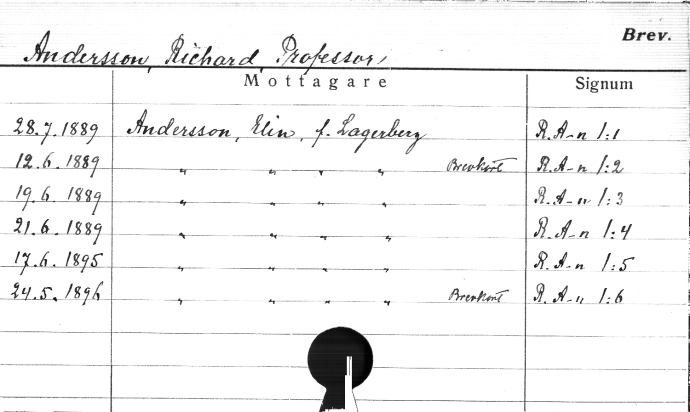 Brev.
Andersson, Richard, Professor,
Mottagare Signum
28.7.1889 Andersson, Elin, f. Lagerberg R. A-n 1:1
12.6.1889 " " " " Brevkort R. A-n 1:2
19.6.1889 " " " " R. A-n 1:3
21.6.1889 " " " " R. A-n 1:4
17.6.1895 " " " " R. A-n 1:5
24.5.1896 " " " " Brevkort R. A-n 1:6